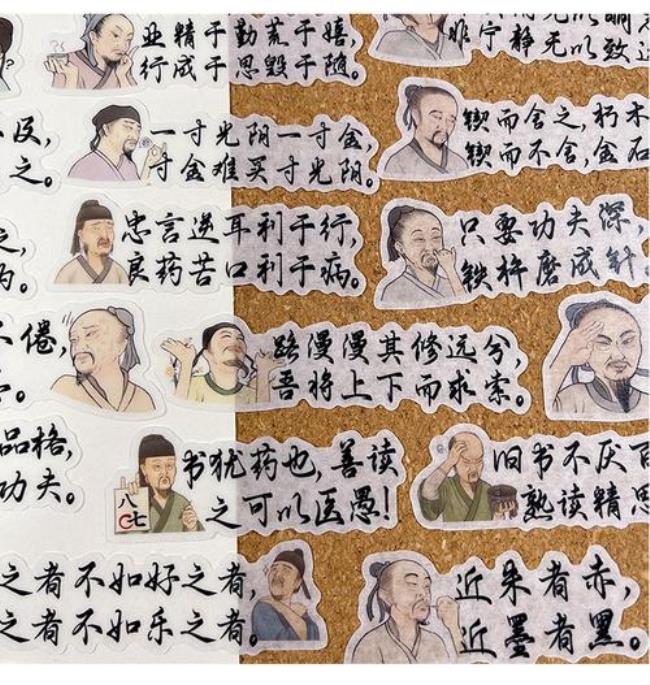 业精于勤荒于嬉，
行成于思毁于随。
非宁静无以致
一寸光阴一寸金，
寸金难买寸光阴。
锲而舍之，朽木
锲而不舍，金石
之。
忠言逆耳利于行，
良药苦口利于病。
只要功夫深，
铁杵磨成针。
倦，
路漫漫其修远兮，
吾将上下而求索。
品格，
功夫。
八
七
书犹药也，善读
之可以医愚！
旧书不厌百
熟读精思
之者不如好之者，
之者不如乐之者。
近朱者赤，
近墨者黑。